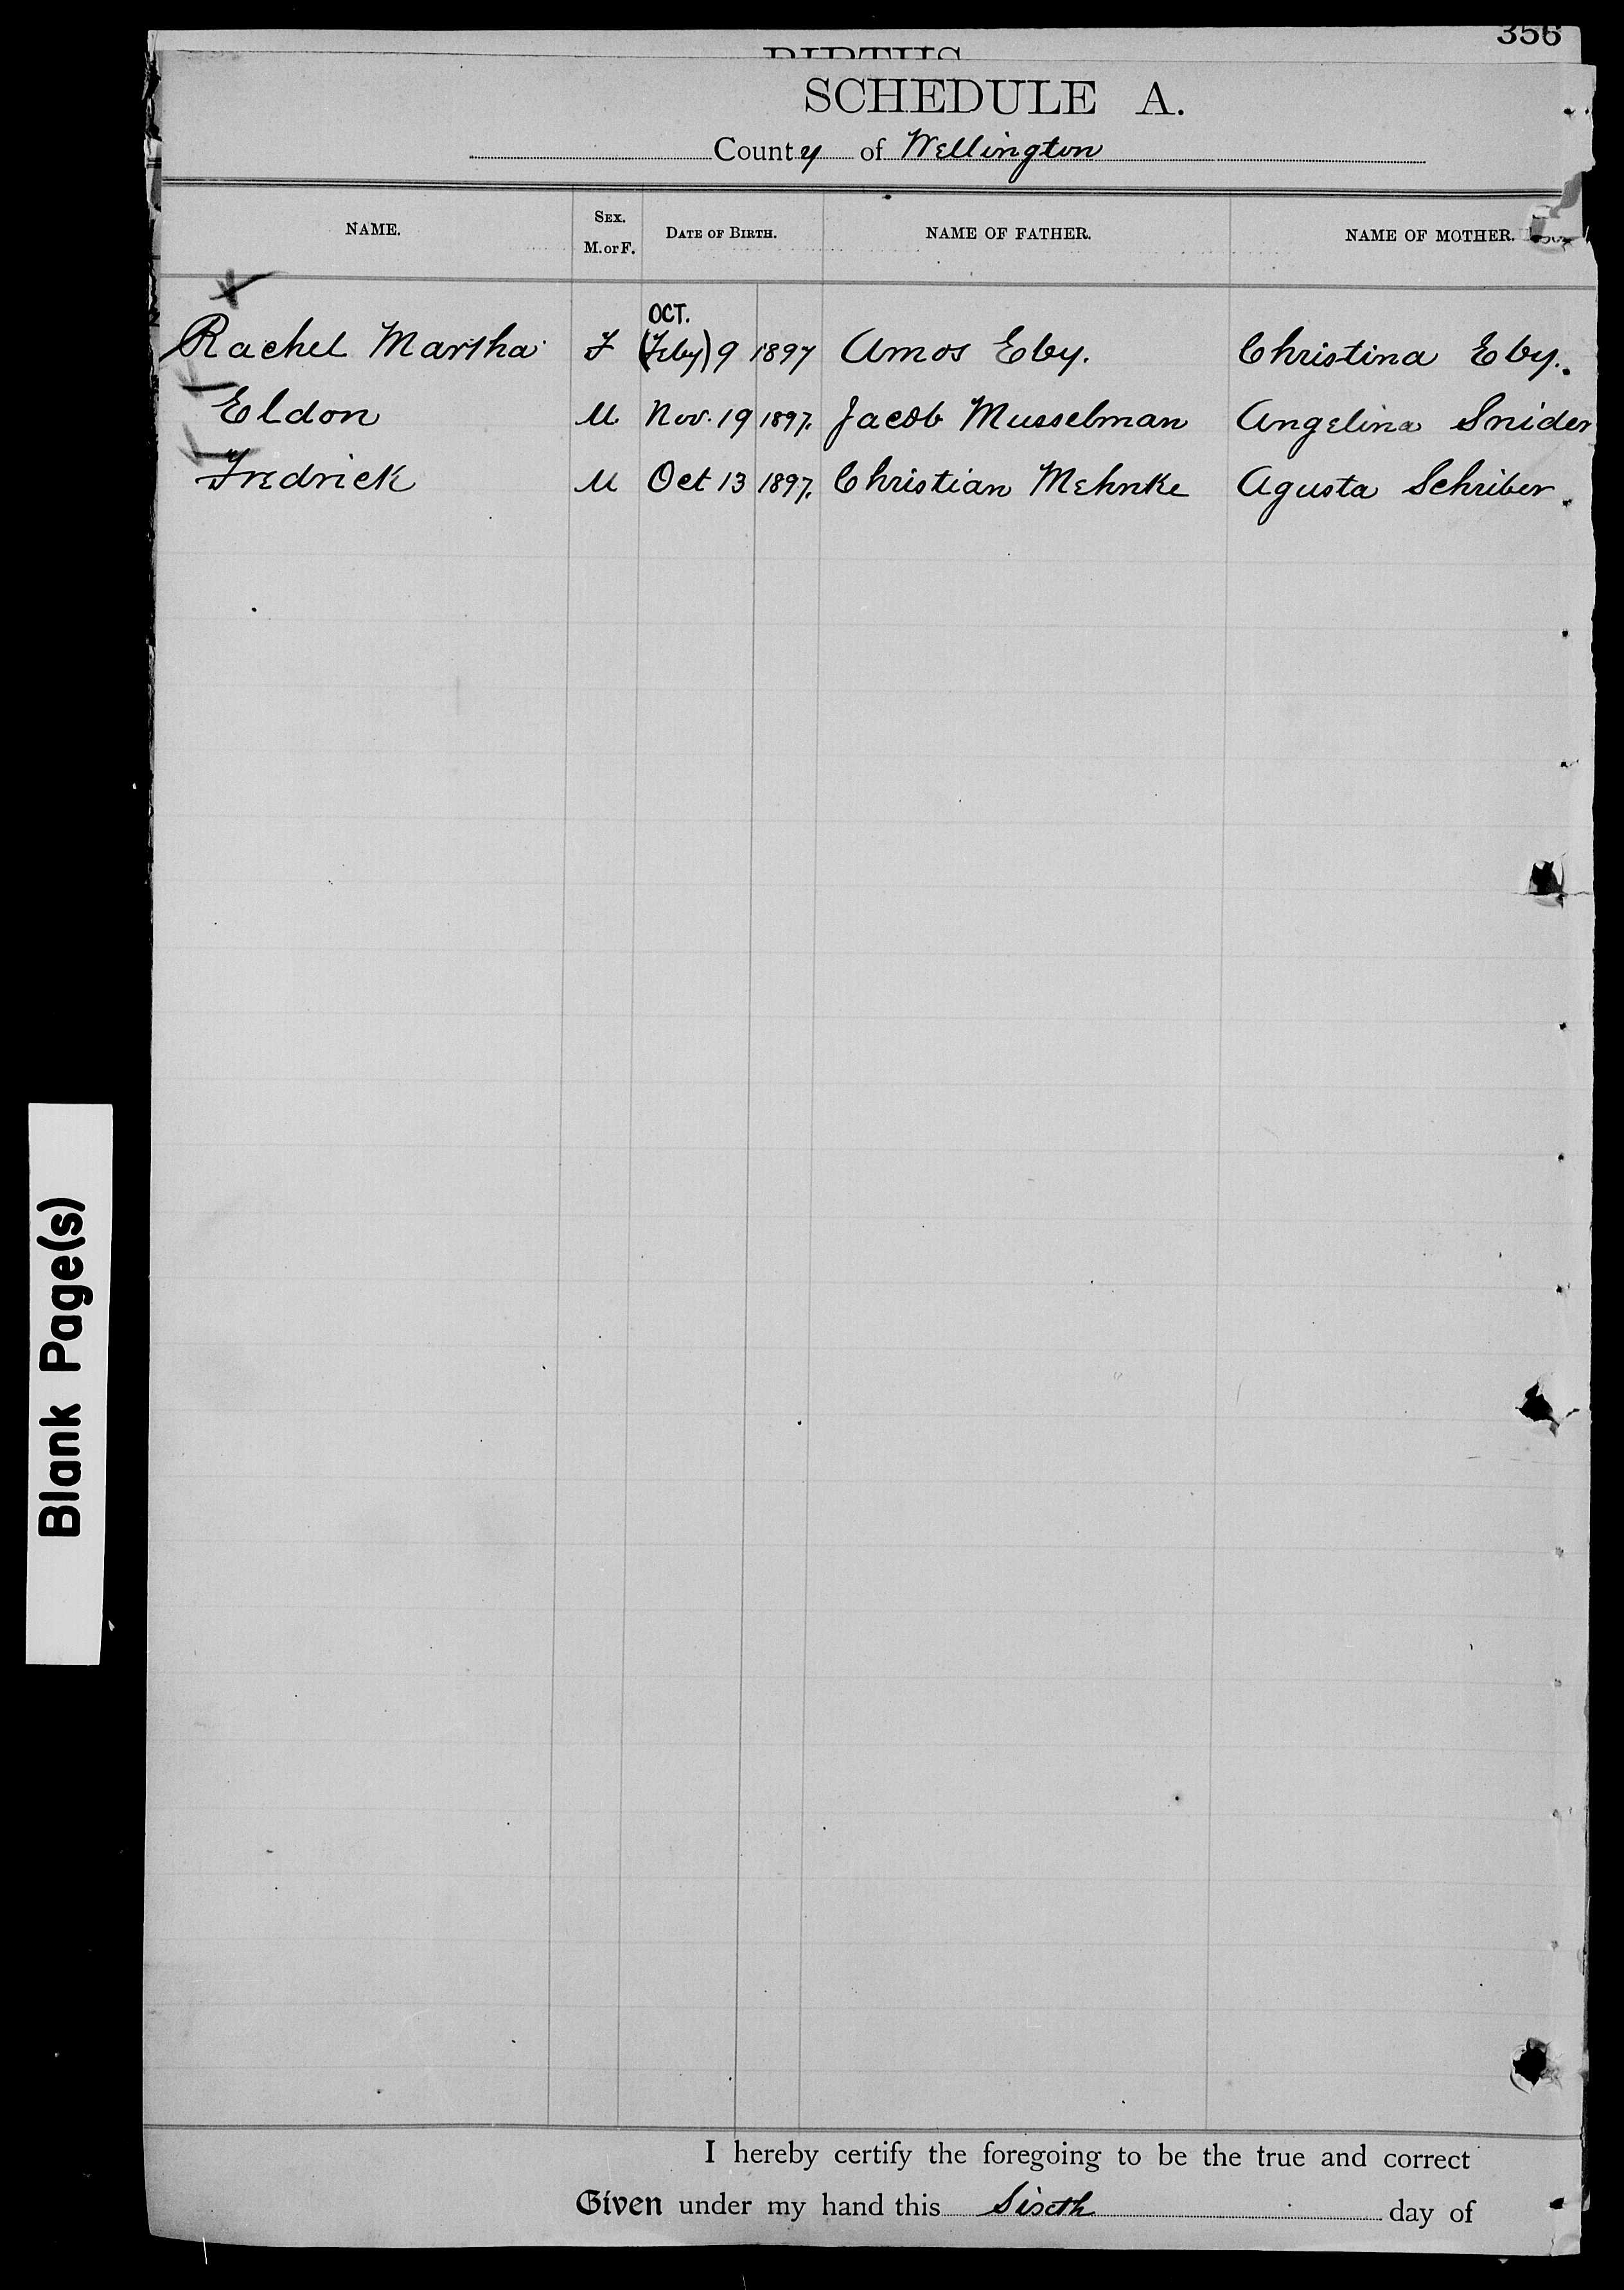 356
BIRTHS
SCHEDULE A.
County of Wellington
NAME. SEX. M. or F. DATE OF BIRTH. NAME OF FATHER. NAME OF MOTHER.
OCT.
Rachel Martha F (Feby) 9 1897 Amos Eby. Christina Eby.
Eldon M Nov. 19 1897. Jacob Musselman Angelina Snider
Fredrick M Oct 13 1897. Christian Mehnke Agusta Schriber.
Blank Page(s)
I hereby certify the foregoing to be the true and correct
Given under my hand this Sixth day of